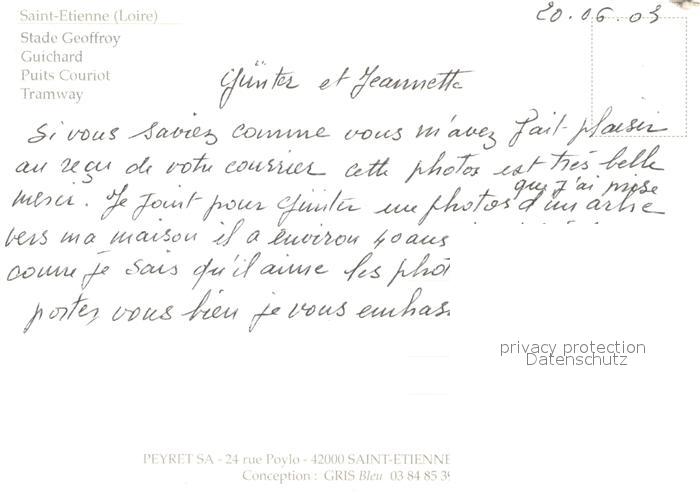 Saint-Etienne (Loire)
20.06.03
Stade Geoffroy
Guichard
Puits Couriot
Tramway
Günter et Jeannette
Si vous saviez comme vous m'avez fait plaisir
au reçu de votre courrier cette photos est très belle
merci. Je joint pour Günter une photos d'un arbre
que j'ai prise
vers ma maison il a environ 40 ans
comme je sais qu'il aime les phot
portez vous bien je vous embras
privacy protection
Datenschutz
PEYRET SA - 24 rue Poylo - 42000 SAINT-ETIENNE
Conception : GRIS Bleu 03 84 85 39